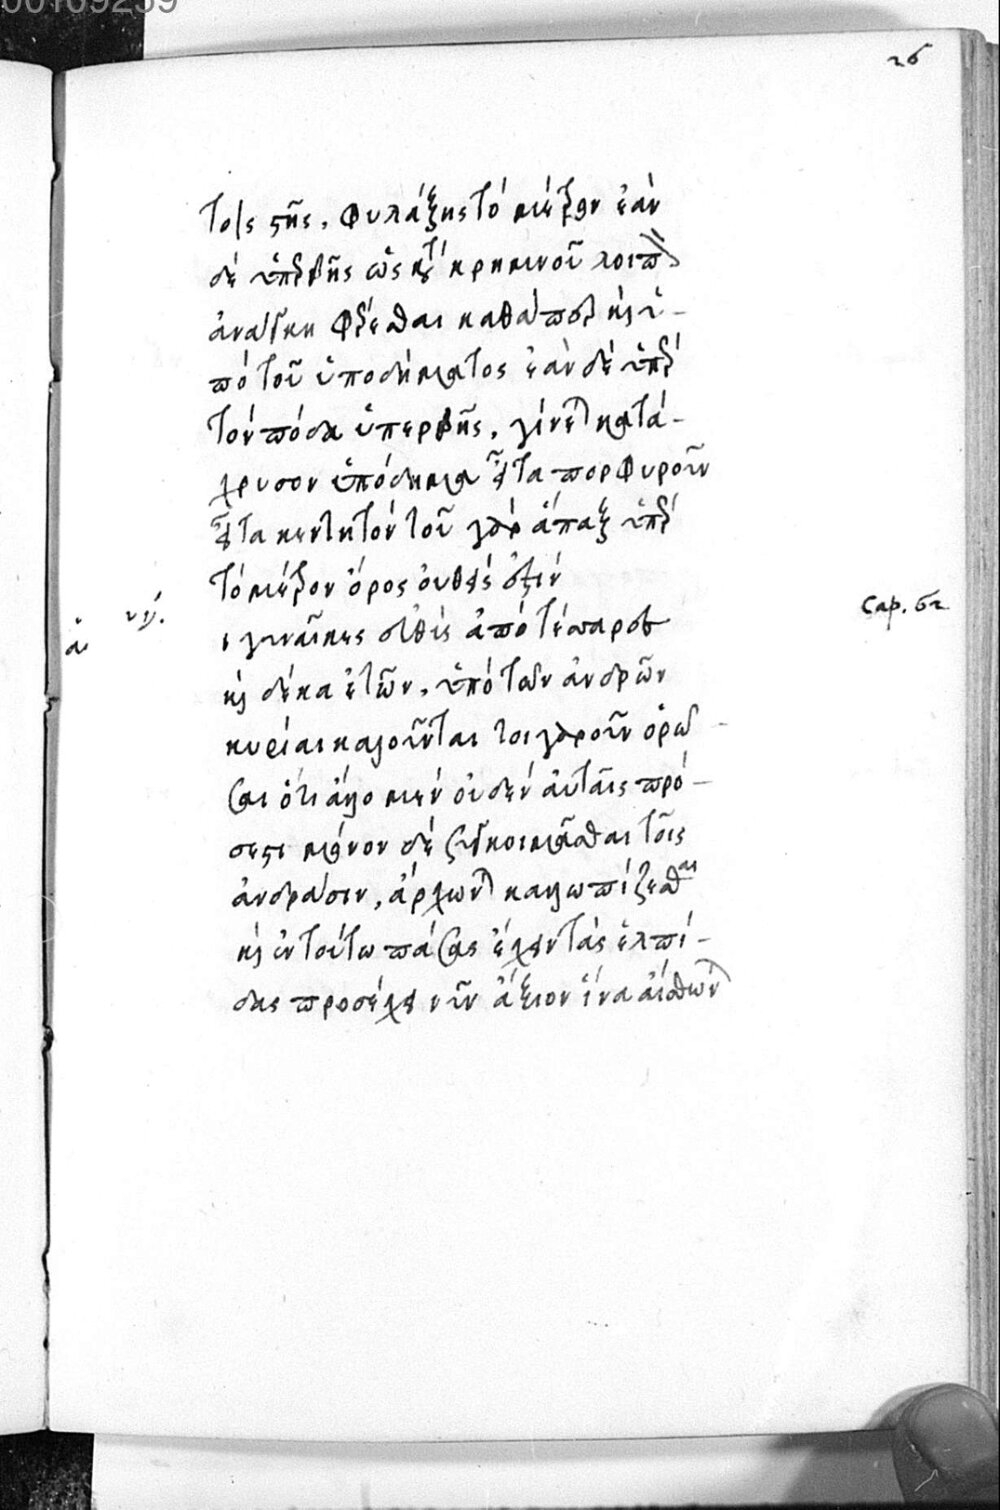 00169259
26
τοῖς στῆς, φυλάξης τὸ μέτρον ἐὰν
δὲ ὑπερβῆς ὡς κατὰ κρημνοῦ λοιπὸν
ἀνάγκη φέρεσθαι καθάπερ καὶ ἐ-
πὶ τοῦ ὑποδήματος ἐὰν δὲ ὑπὲρ
τὸν πόδα ὑπερβῆς, γίνεται κατά-
χρυσον ὑπόδημα εἶτα πορφυροῦν
εἶτα κεντητὸν τοῦ γὰρ ἅπαξ ὑπὲρ
τὸ μέτρον ὅρος οὐθείς ἐστιν
νγ. Cap. 62
ι γυναῖκες εὐθὺς ἀπὸ τεσσάρων
καὶ δέκα ἐτῶν, ὑπὸ τῶν ἀνδρῶν
κυρίαι καλοῦνται τοιγαροῦν ὁρῶ-
σαι ὅτι ἄλλο μὲν οὐδὲν αὐταῖς πρό-
σεστι μόνον δὲ συγκοιμᾶσθαι τοῖς
ἀνδράσιν, ἄρχωνται καλλωπίζεσθαι
καὶ ἐν τούτω πάσας ἔχειν τὰς ἐλπί-
δας προσέχειν οὖν ἄξιον ἵνα αἴσθωνται